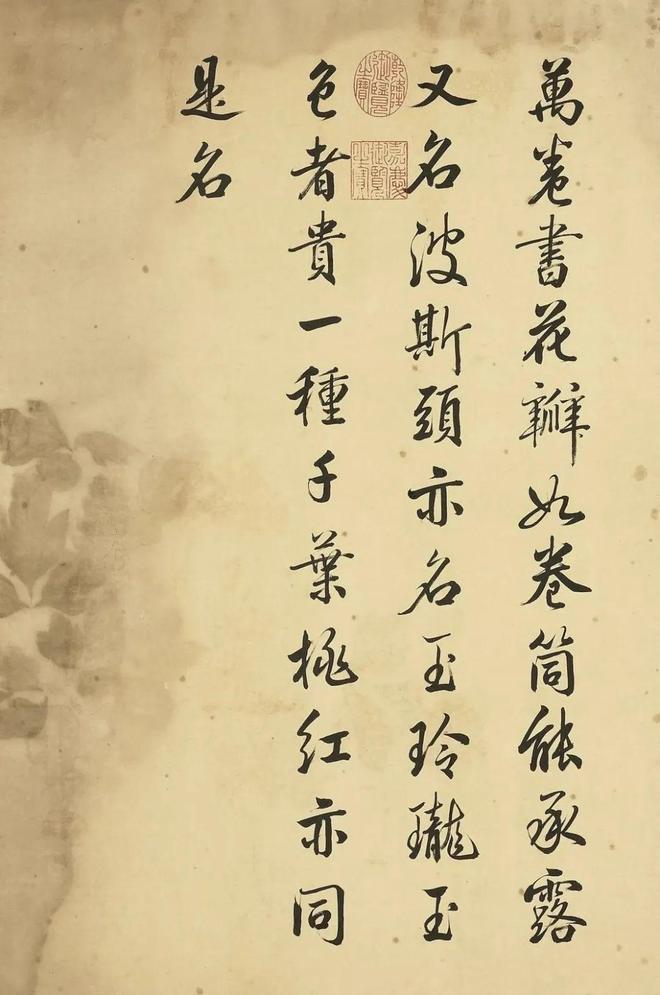 萬卷書花瓣如卷筒能承露
又名波斯頭亦名玉玲瓏玉
色者貴一種千葉桃紅亦同
是名
乾隆御覽之寶
嘉慶御覽之寶